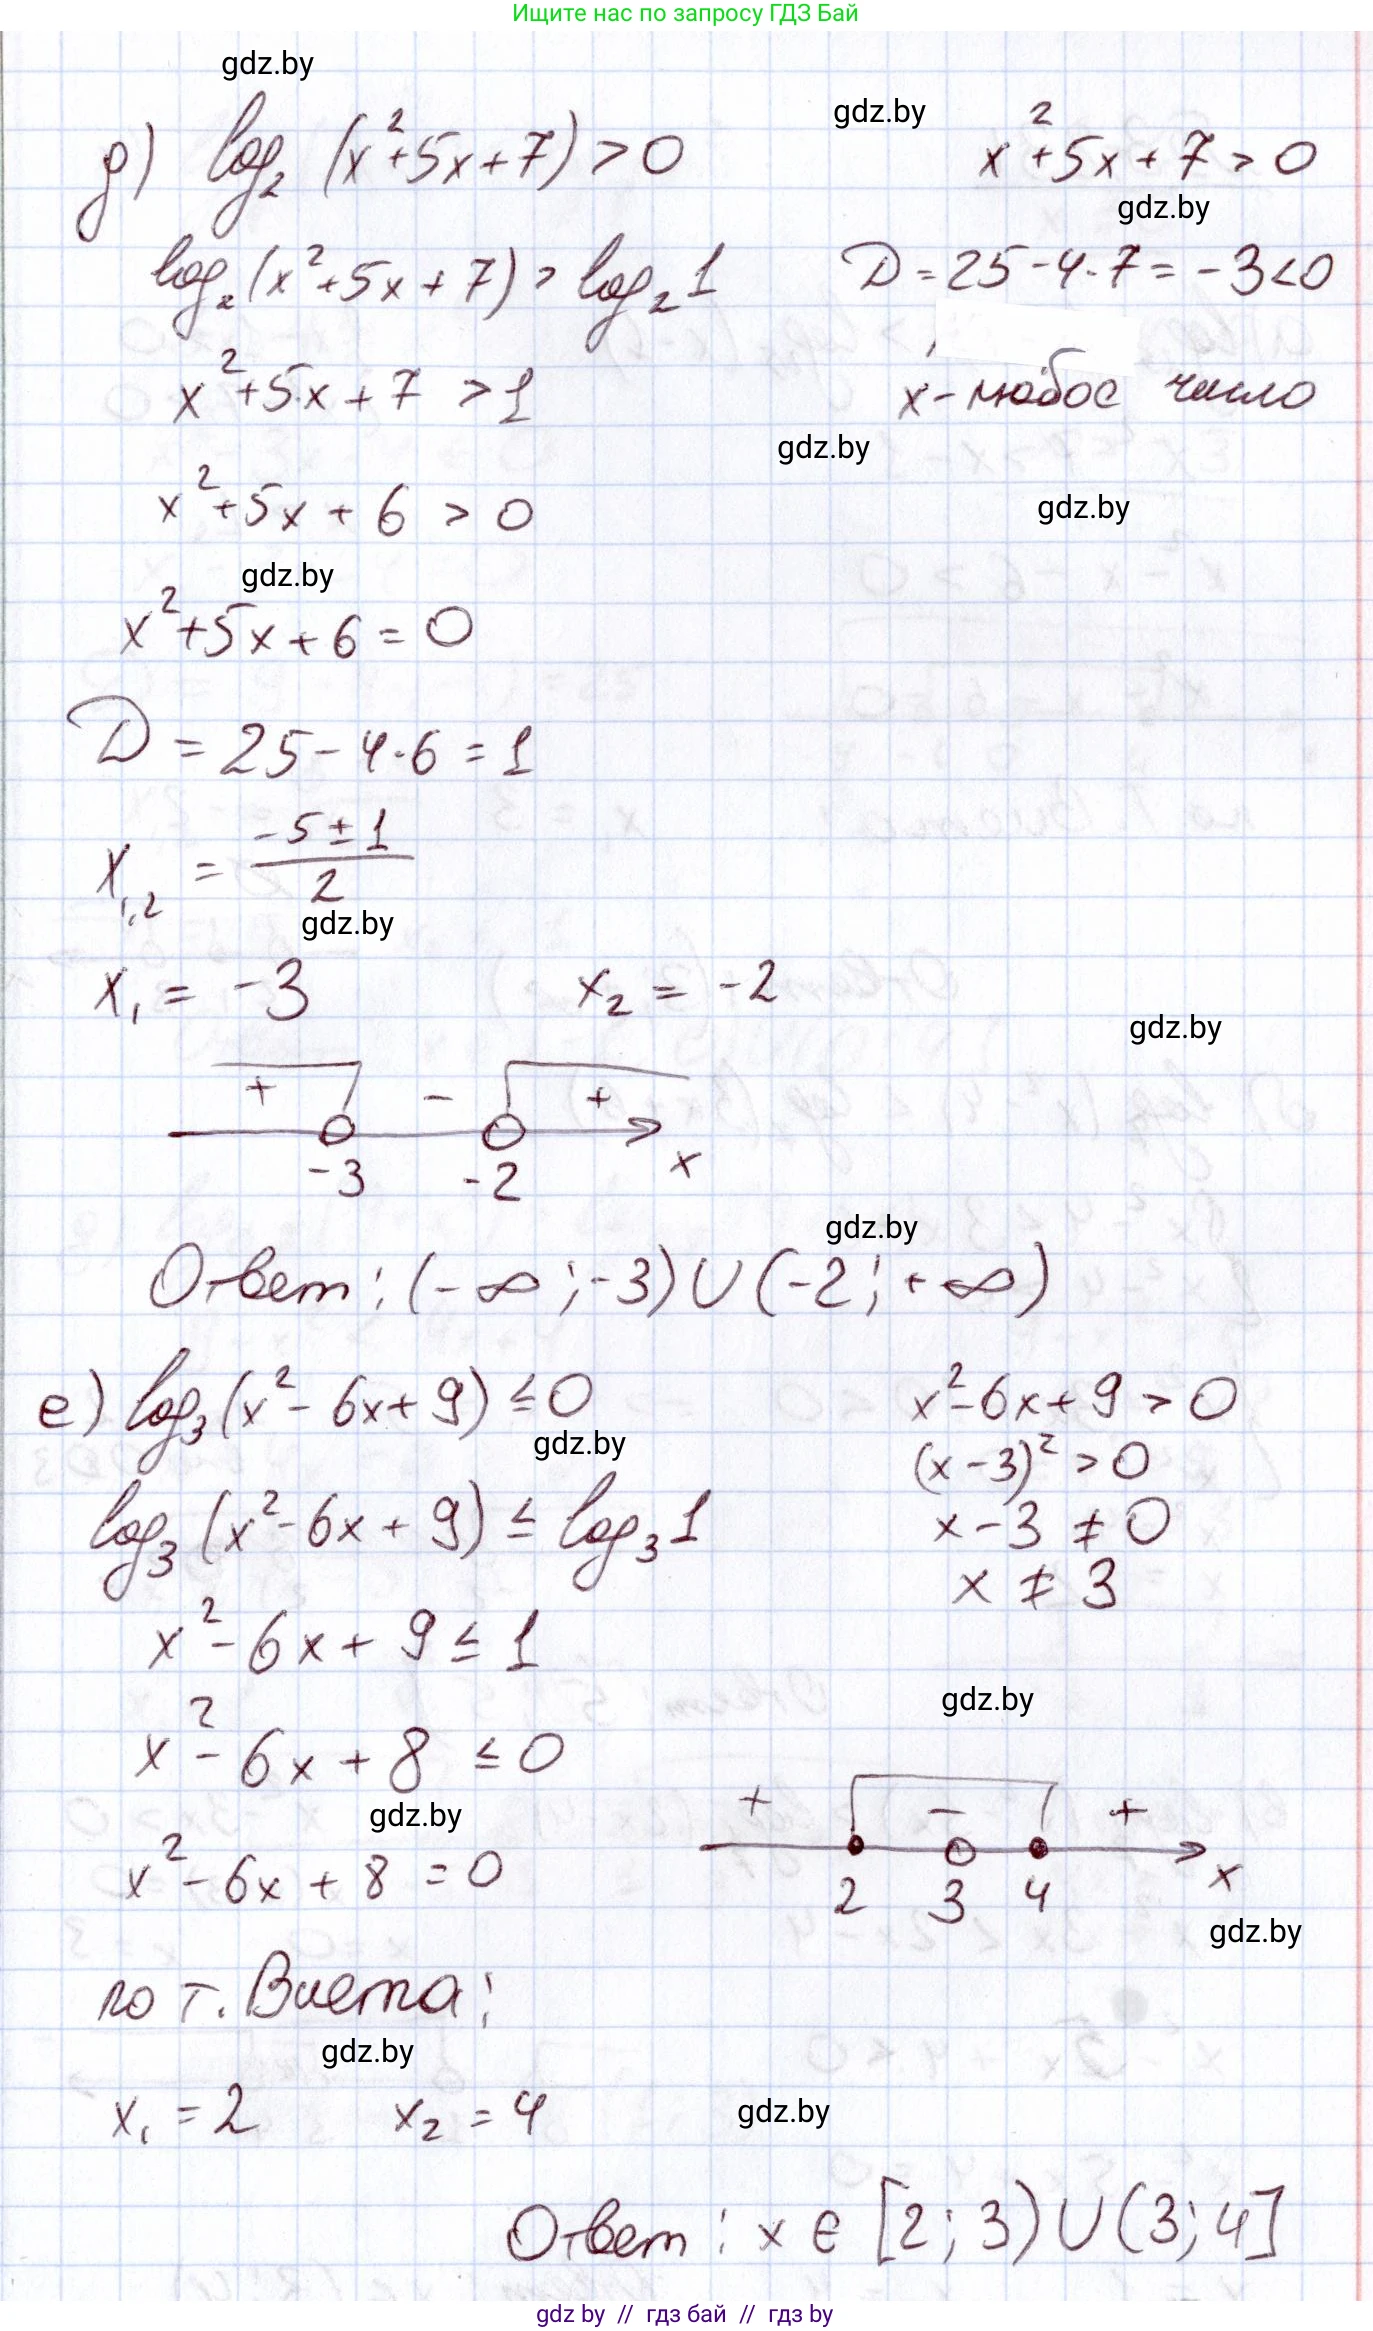 Ищите нас по запросу ГДЗ Бай
gdz.by
д) log₂ (x²+5x+7) > 0
gdz.by
x²+5x+7 > 0
gdz.by
log₂ (x²+5x+7) > log₂ 1
D = 25-4·7 = -3<0
x²+5x+7 > 1
x - любое число
gdz.by
x²+5x+6 > 0
gdz.by
gdz.by
x²+5x+6 = 0
D = 25-4·6 = 1
x₁,₂ = (-5±1)/2
gdz.by
x₁ = -3 x₂ = -2
gdz.by
+ - +
-3 -2 x
gdz.by
Ответ: (-∞;-3)∪(-2;+∞)
е) log₃(x²-6x+9) ≤ 0
x²-6x+9 > 0
gdz.by
(x-3)² > 0
log₃ (x²-6x+9) ≤ log₃ 1
x-3 ≠ 0
x ≠ 3
x²-6x+9 ≤ 1
gdz.by
x²-6x+8 ≤ 0
gdz.by
+ - +
2 3 4 x
x²-6x+8 = 0
gdz.by
по т. Виета:
gdz.by
x₁ = 2 x₂ = 4
gdz.by
Ответ: x ∈ [2;3)∪(3;4]
gdz by // гдз бай // гдз by